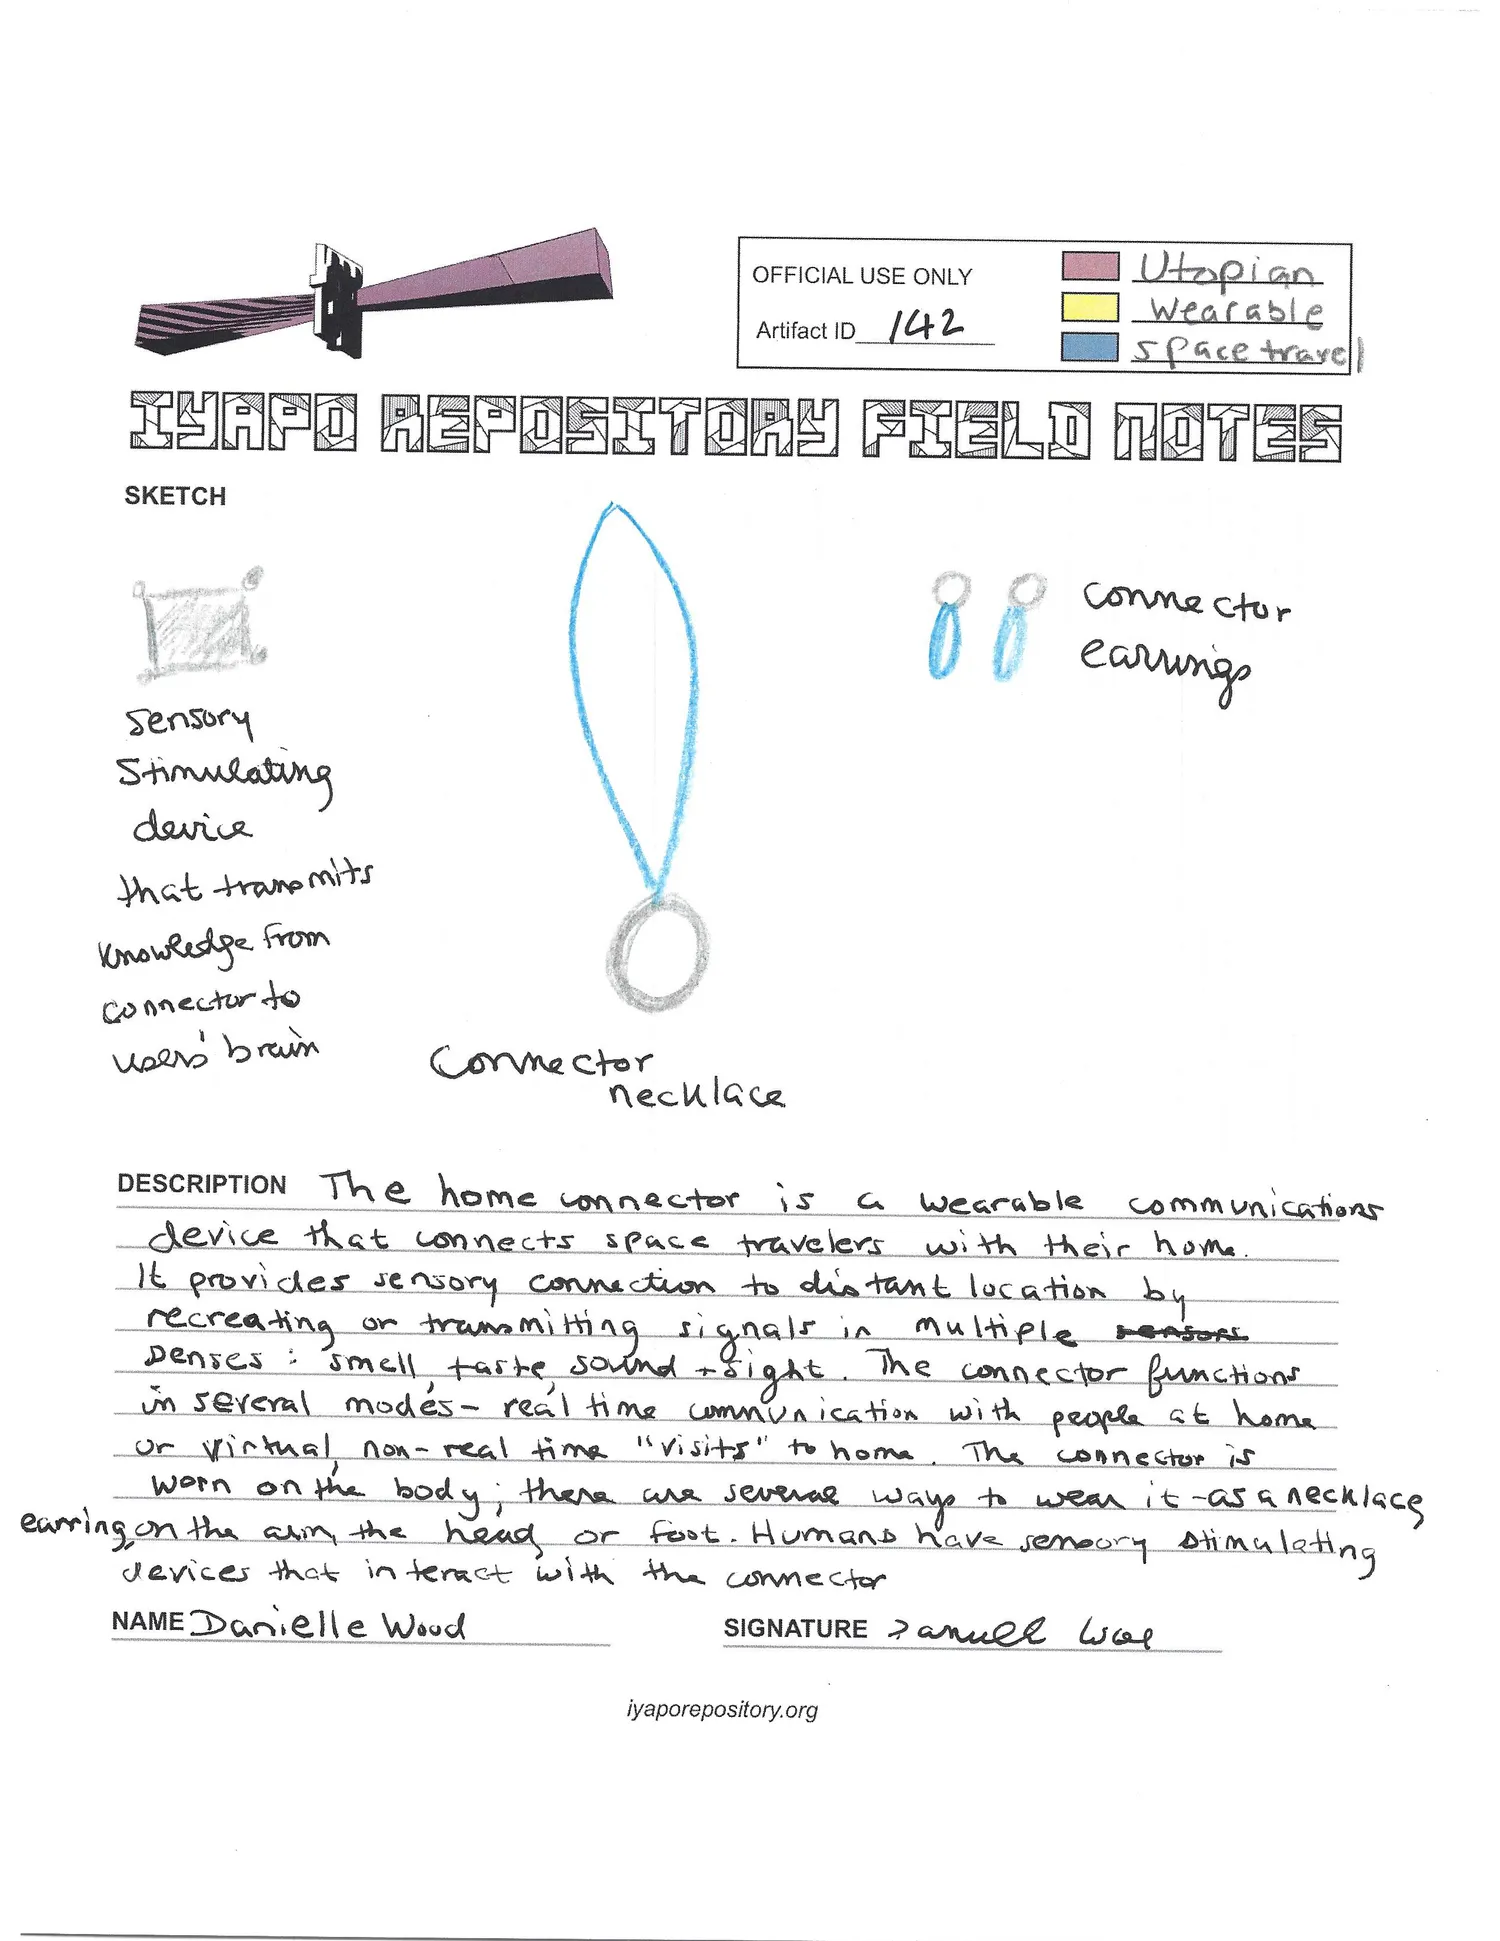 OFFICIAL USE ONLY
Artifact ID 142
Utopian
Wearable
space travel
IYAPO REPOSITORY FIELD NOTES
SKETCH
sensory
stimulating
device
that transmits
knowledge from
connector to
users' brain
Connector
necklace
connector
earrings
DESCRIPTION The home connector is a wearable communications
device that connects space travelers with their home.
It provides sensory connection to distant location by
recreating or transmitting signals in multiple sensors
senses: smell, taste, sound + sight. The connector functions
in several modes - real time communication with people at home
or virtual, non-real time "visits" to home. The connector is
worn on the body; there are several ways to wear it - as a necklace,
earring, on the arm, the head, or foot. Humans have sensory stimulating
devices that interact with the connector
NAME Danielle Wood
SIGNATURE Danielle Wood
iyaporepository.org